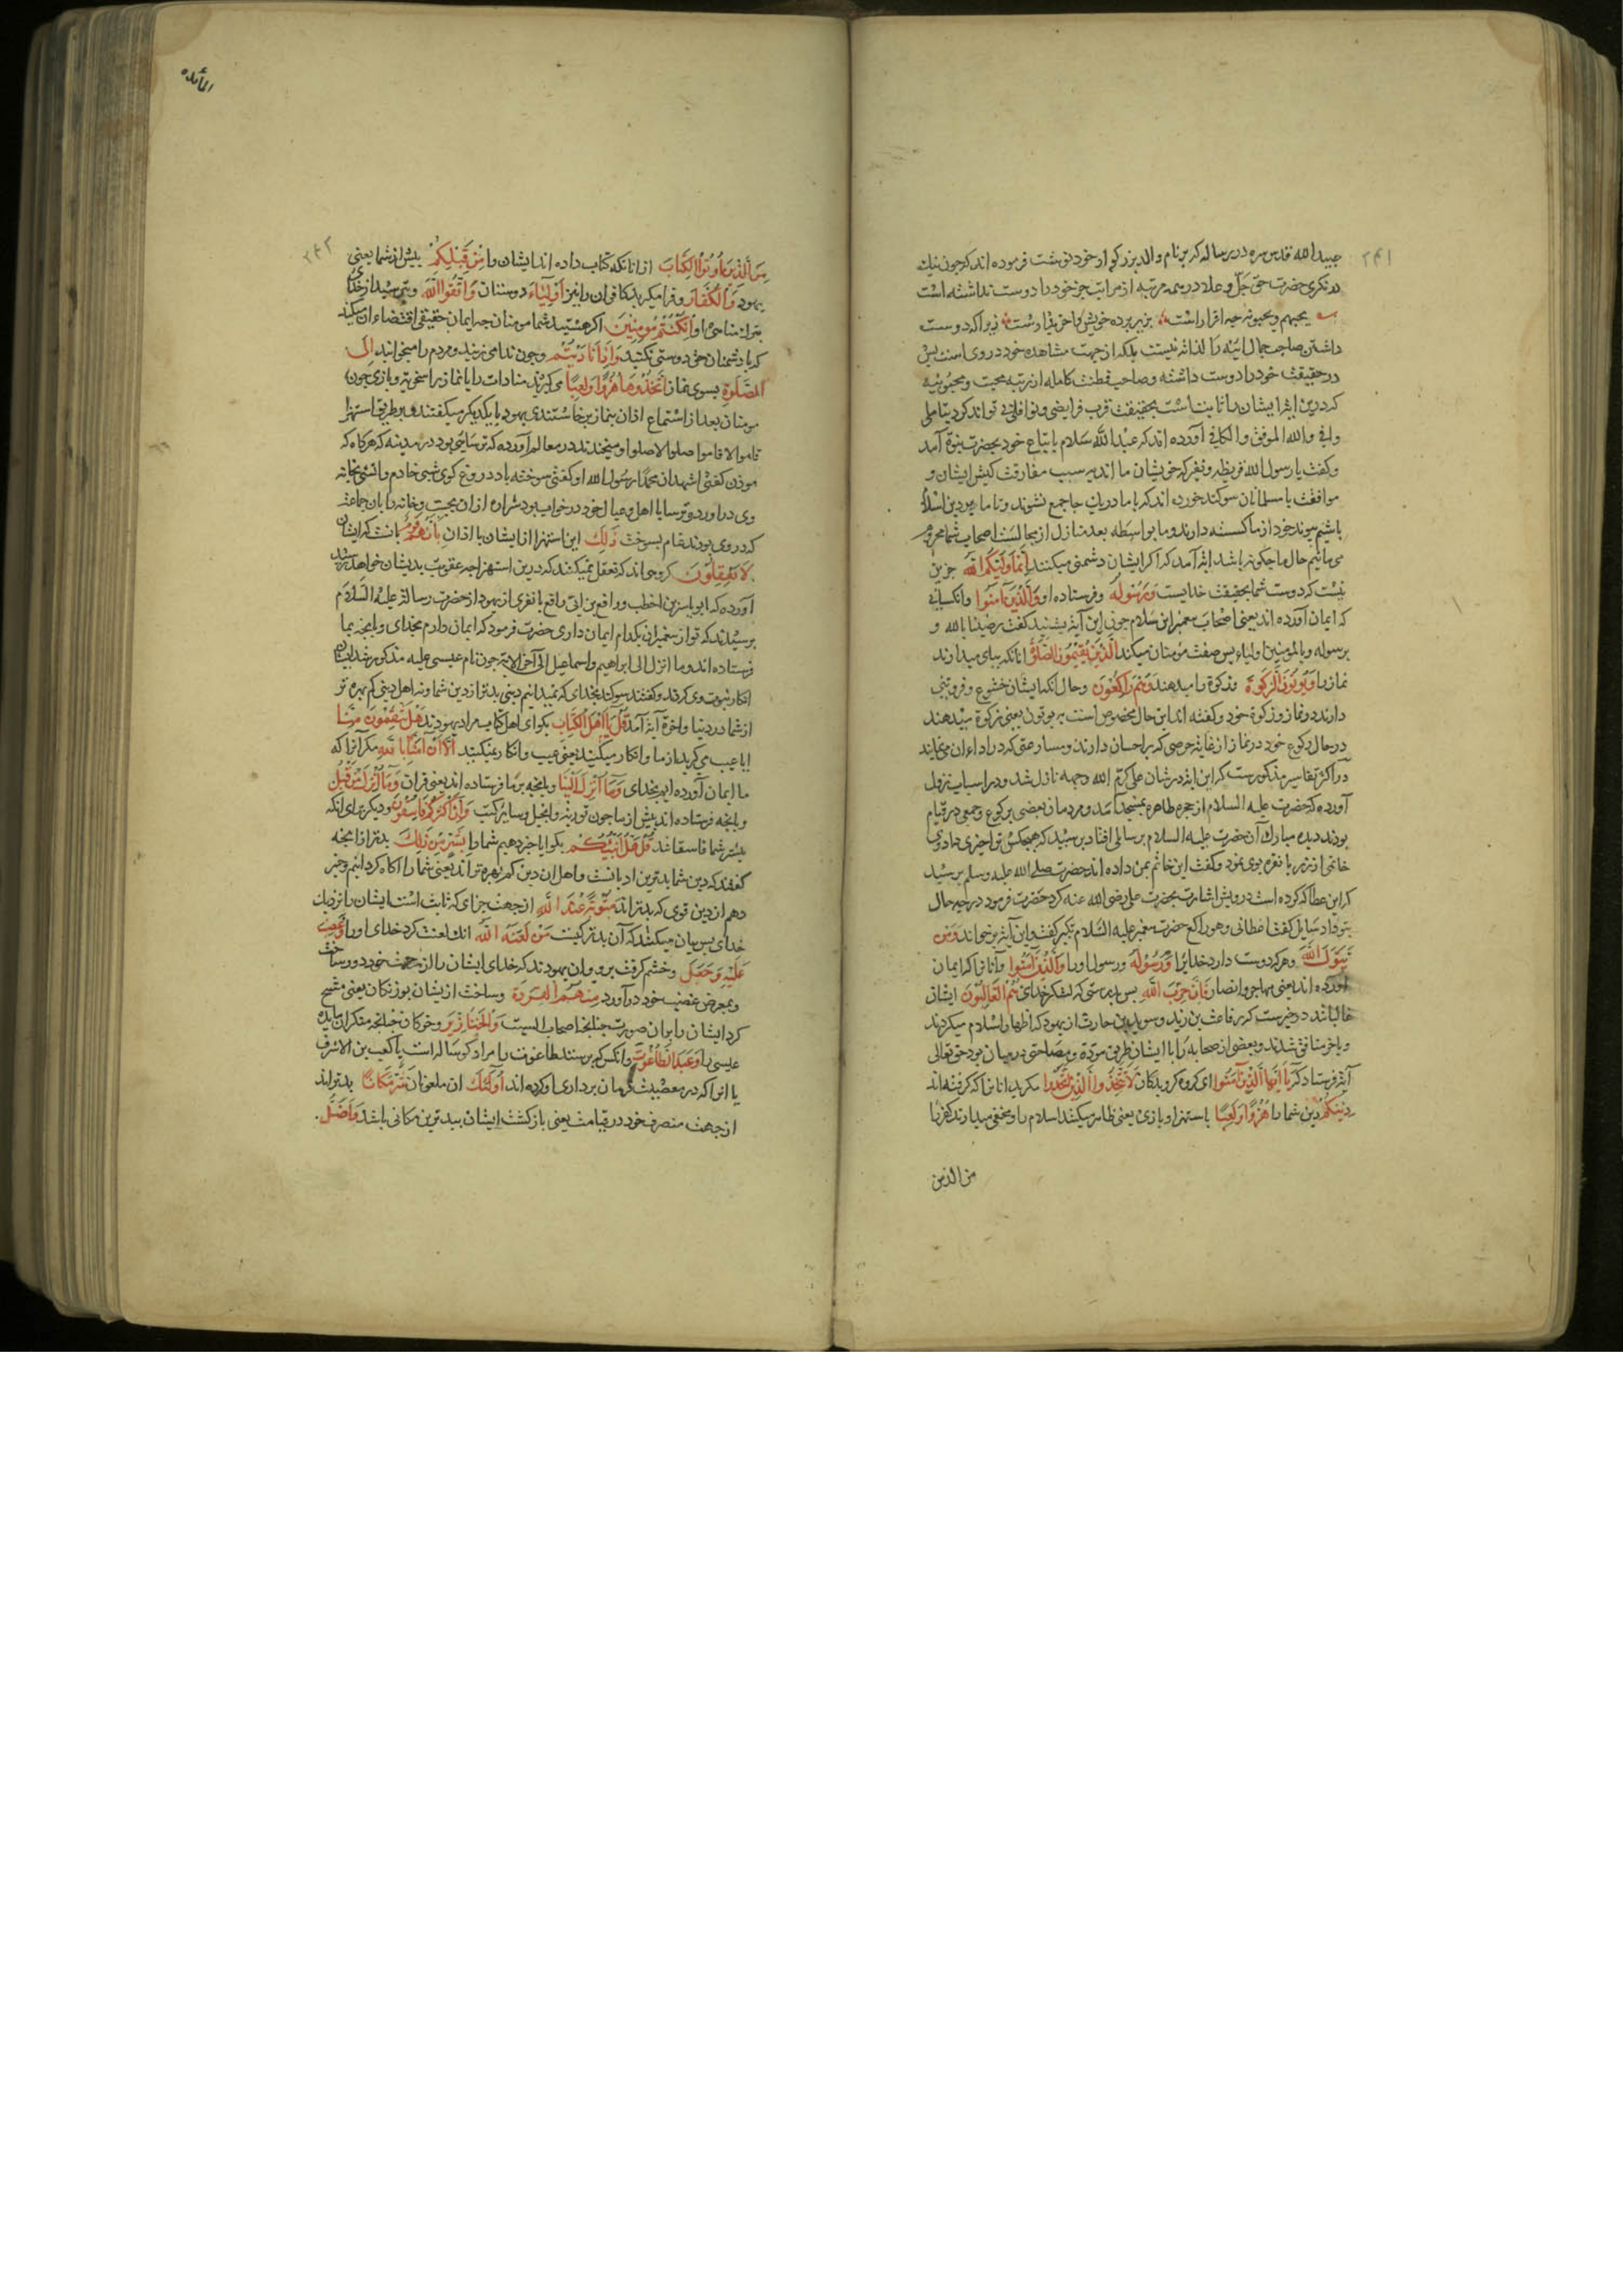 ۲۴۱
عبیدالله قدس سره در رساله که بنام والد بزرکوار خود نوشت فرموده اند که چون نیك
در نکری حضرت حق جلّ و علا در همه مرتبه از مراتب جز خود را دوست نداشته است
یحبهم و یحبونه چه اقرار است بزیر پرده خویش را خریدار است زیرا که دوست
داشتن صاحب جمال آینه را لذاته نیست بلکه از جهت مشاهده خود در وی است پس
در حقیقت خود را دوست داشته و صاحب فطنت کامله از رتبه محبت و محبوبیه
که درین آیه ایشان را ثابتست بحقیقت قرب فرایض و نوافل تواند کرد بتاملی
وافی والله الموفق والکافی آورده اند که عبدالله سلام با تباع خود بحضرت نبوة آمد
و کفت یا رسول الله قریظه و نضیر که خویشان ما اند به سبب مفارقت کیش ایشان و
موافقت با مسلمانان سوکند خورده اند که با ما در یك جا جمع نشوند و تا ما بر دین اسلام
باشیم پیوند خود از ما کسسته دارند و ما بواسطه بعد منازل از مجالست اصحاب شما محروم
می مانیم حال ما چکونه باشد آیة آمد که اکر ایشان دشمنی میکنند اِنَّمَا وَلِیُّکُمُ اللهُ جز این
نیست که دوست شما بحقیقت خدایست وَرَسُولُهُ و فرستاده او وَالَّذِینَ آمَنُوا و آنکسانی
که ایمان آورده اند یعنی اصحاب پیغمبر ابن سلام چون این آیة بشنید کفت رضینا بالله و
برسوله و بالمومنین اولیاء پس صفت مؤمنان میکند الَّذِینَ یُقِیمُونَ الصَّلوةَ آنانکه بپای میدارند
نماز را وَیُؤتُونَ الزَّکوةَ و زکوة را میدهند وَهُم رَاکِعُونَ و حال آنکه ایشان خشوع و فروتنی
دارند در نماز و زکوة خود و کفته اند این حال مخصوص است به یوتون یعنی زکوة میدهند
در حال رکوع خود در نماز از غایة حرصی که بر احسان دارند و مسارعتی که در اداء آن مینمایند
در اکثر تفاسیر مذکورست که این آیة در شان علی کرّم الله وجهه نازل شد و در اسباب نزول
آورده که حضرت علیه السلام از حجره طاهره بمسجد آمد و مردمان بعضی برکوع و جمعی در قیام
بودند دیده مبارك آن حضرت علیه السلام بر سایلی افتاد پرسید که هیچکس ترا چیزی داد وی
خاتمی از زر یا نقره بوی نمود و کفت این خاتم بمن داده اند حضرت صلی الله علیه وسلم پرسید
که این عطا که کرده است درویش اشارت بحضرت علی رضی الله عنه کرد حضرت فرمود در چه حال
بتو داد سایل کفت اعطانی و هو راکع حضرت پیغمبر علیه السلام تکبیر کفت و این آیة بر خواند وَمَن
یَتَوَلَّ اللهَ و هر که دوست دارد خدایرا وَرَسُولَهُ و رسول او را وَالَّذِینَ آمَنُوا و آنانرا که ایمان
آورده اند یعنی مهاجر و انصار فَاِنَّ حِزبَ اللهِ پس بدرستی که لشکر خدای هُمُ الغَالِبُونَ ایشان
غالبانند در خبرست که رفاعة بن زید و سوید بن حارث از یهود که اظهار اسلام میکردند
و باخر منافق شدند و بعضی از صحابه را با ایشان طریق مودّة و مصاحبتی در میان بود حق تعالی
آیة فرستاد که یَا اَیُّهَا الَّذِینَ آمَنُوا ای کروه کرویدکان لَا تَتَّخِذُوا الَّذِینَ اتَّخَذُوا مکیرید آنانرا که کرفته اند
دِینَکُم دین شما را هُزُوًا وَلَعِبًا باستهزا و بازی یعنی ظاهر میکنند اسلام را و مخفی میدارند کفر را
من الذین
المائده
۲۴۲
مِنَ الَّذِینَ اُوتُوا الکِتَابَ از آنانکه کتاب داده اند ایشان را مِن قَبلِکُم پیش از شما یعنی
یهود وَالکُفَّارَ و فرا مکیرید کافران را نیز اَولِیَاءَ دوستان وَاتَّقُوا اللهَ و بترسید از خدای
بترك مناهی او اِن کُنتُم مُؤمِنِینَ اکر هستید شما مومنان چه ایمان حقیقی اقتضاء آن میکند
که با دشمنان حق دوستی نکنید وَاِذَا نَادَیتُم و چون ندا می زنید و مردم را میخوانید اِلَی
الصَّلوةِ بسوی نماز اتَّخَذُوهَا هُزُوًا وَلَعِبًا می کیرند منادات را یا نماز را سخریه و بازی چون
مومنان بعد از استماع اذان بنماز برخاستندی یهود با یکدیکر میکفتند بطریق استهزا
قاموا لا قاموا صلوا لا صلوا و میخندند در معالم آورده که ترسایی بود در مدینه که هرکاه که
موذن کفتی اشهد ان محمدًا رسول الله او کفتی سوخته باد دروغ کوی شبی خادم او آتشی بخانه
وی در آورد و ترسا با اهل و عیال خود در خواب بود شراره از آن بجست و خانه را با آن جماعة
که در وی بودند تمام بسوخت ذٰلِكَ این استهزا از ایشان با اذان بِاَنَّهُم قَومٌ بآنست که ایشان
لَا یَعقِلُونَ کروهی اند که تعقل نمیکنند که درین استهزا چه عقوبت بدیشان خواهد رسید
آورده که ابو یاسر بن اخطب و رافع بن ابی رافع با نفری از یهود از حضرت رسالة علیه السلام
پرسیدند که تو از پیغمبران بکدام ایمان داری حضرت فرمود که ایمان دارم بخدای و بانچه بما
فرستاده اند و ما انزل الی ابراهیم و اسماعیل الی آخر الآیه چون نام عیسی علیه مذکور شد ایشان
انکار نبوت وی کردند و کفتند سوکند بخدای که نمیدانیم دینی بدتر از دین شما و نه اهل دینی کم بهره تر
از شما در دنیا و آخرة آیة آمد قُل یَا اَهلَ الکِتَابِ بکو ای اهل کتاب مراد یهودند هَل تَنقِمُونَ مِنَّا
آیا عیب می کیرید از ما و انکار میکنید یعنی عیب و انکار نمیکنید اِلَّا اَن آمَنَّا بِاللهِ مکر آنرا که
ما ایمان آورده ایم بخدای وَمَا اُنزِلَ اِلَینَا و بانچه بر ما فرستاده اند یعنی قرآن وَمَا اُنزِلَ مِن قَبلُ
و بانچه فرستاده اند پیش از ما چون توریة و انجیل و سایر کتب وَاَنَّ اَکثَرَکُم فَاسِقُونَ و دیکر برای آنکه
بیشتر شما فاسقانند قُل هَل اُنَبِّئُکُم بکو آیا خبر دهیم شما را بِشَرٍّ مِن ذٰلِكَ بدتر از آنچه
کفتند که دین شما بدترین ادیانست و اهل آن دین کم بهره تراند یعنی شما را آکاه کردانیم و خبر
دهم از دین قومی که بدتراند مَثُوبَةً عِندَ اللهِ از جهت جزای که ثابتست ایشان را نزدیك
خدای پس بیان میکند که آن بدتر کیست مَن لَعَنَهُ اللهُ آنك لعنت کرد خدای او را وَغَضِبَ
عَلَیهِ وَجَعَلَ و خشم کرفت بروی و آن یهودند که خدای ایشان را از رحمت خود دور ساخت
و بمعرض غضب خود درآورد مِنهُمُ القِرَدَةَ و ساخت از یشان بوزنکان یعنی مسخ
کرد ایشان را بران صورت چنانچه اصحاب السبت وَالخَنَازِیرَ و خوکان چنانچه منکران مایده
عیسی را وَعَبَدَ الطَّاغُوتَ و آنکس که پرستند طاغوت را مراد کوساله است یا کعب بن الاشرف
یا آنرا که در معصیت فرمان برداری او کرده اند اُولٰئِكَ آن ملعونان شَرٌّ مَکَانًا بدتراند
از جهت منصرف خود در قیامت یعنی بازکشت ایشان ببدترین مکانی باشد وَاَضَلُّ